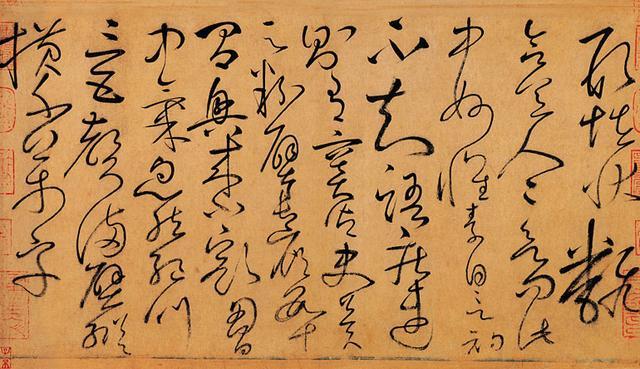 形怪狀翻
合宜人人欲問此
中妙懷素自言初
不知語疾迅
則有竇御史冀
云粉壁長廊數十
間興來小豁胸
中氣忽然絕叫
三五聲滿壁縱
橫千萬字